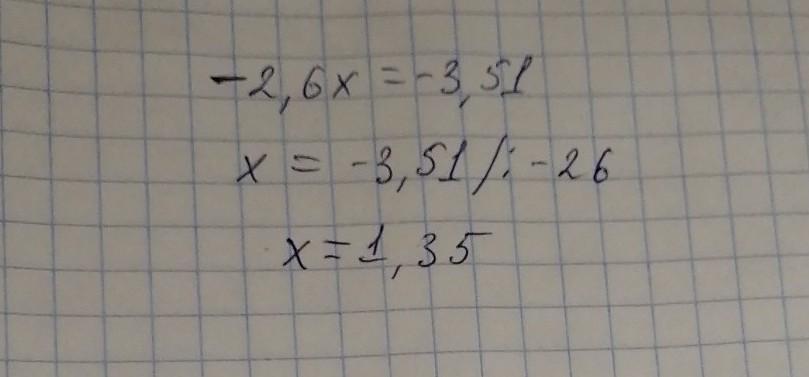 -2,6x = -3,51
x = -3,51 /: -26
x = 1,35